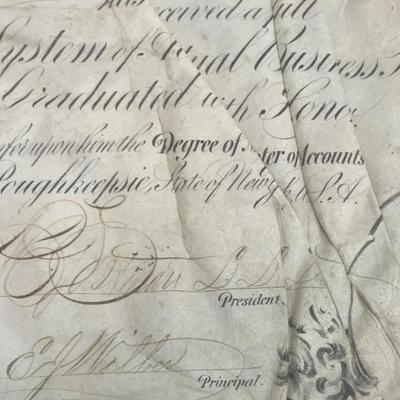 received a full
System of Actual Business
Graduated with Honor
confer upon him the Degree of Master of Accounts
Poughkeepsie, State of New York, U.S.A.
L. L. D.
President.
Principal.